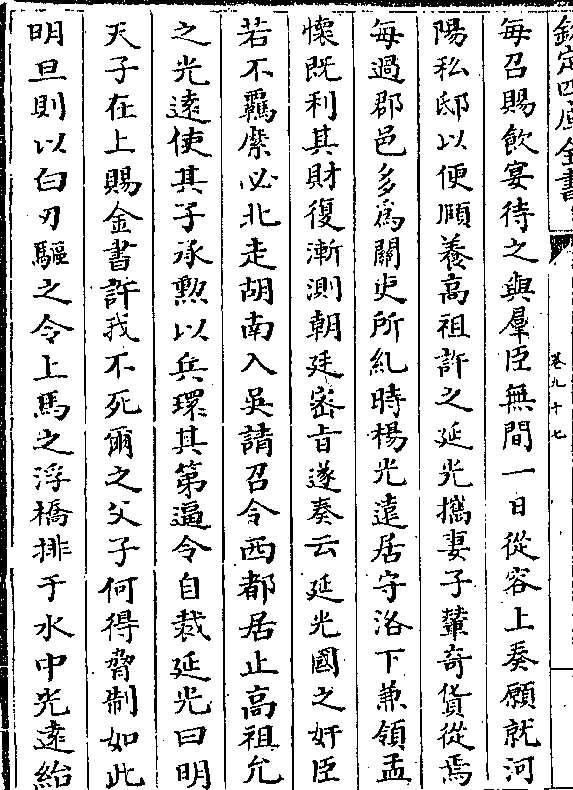 欽定四庫全書
卷九十七
每召賜飲宴待之與羣臣無間一日從容上奏願就河
陽私邸以便頤養高祖許之延光攜妻子輦竒貨從焉
每過郡邑多為關吏所糺時楊光遠居守洛下兼領孟
懷既利其財復漸測朝廷密旨遂奏云延光國之奸臣
若不羈縻必北走胡南入吳請召令西都居止高祖允
之光遠使其子承勲以兵環其第逼令自裁延光曰明
天子在上賜金書許我不死爾之父子何得脅制如此
明旦則以白刃驅之令上馬之浮橋排于水中光遠紿